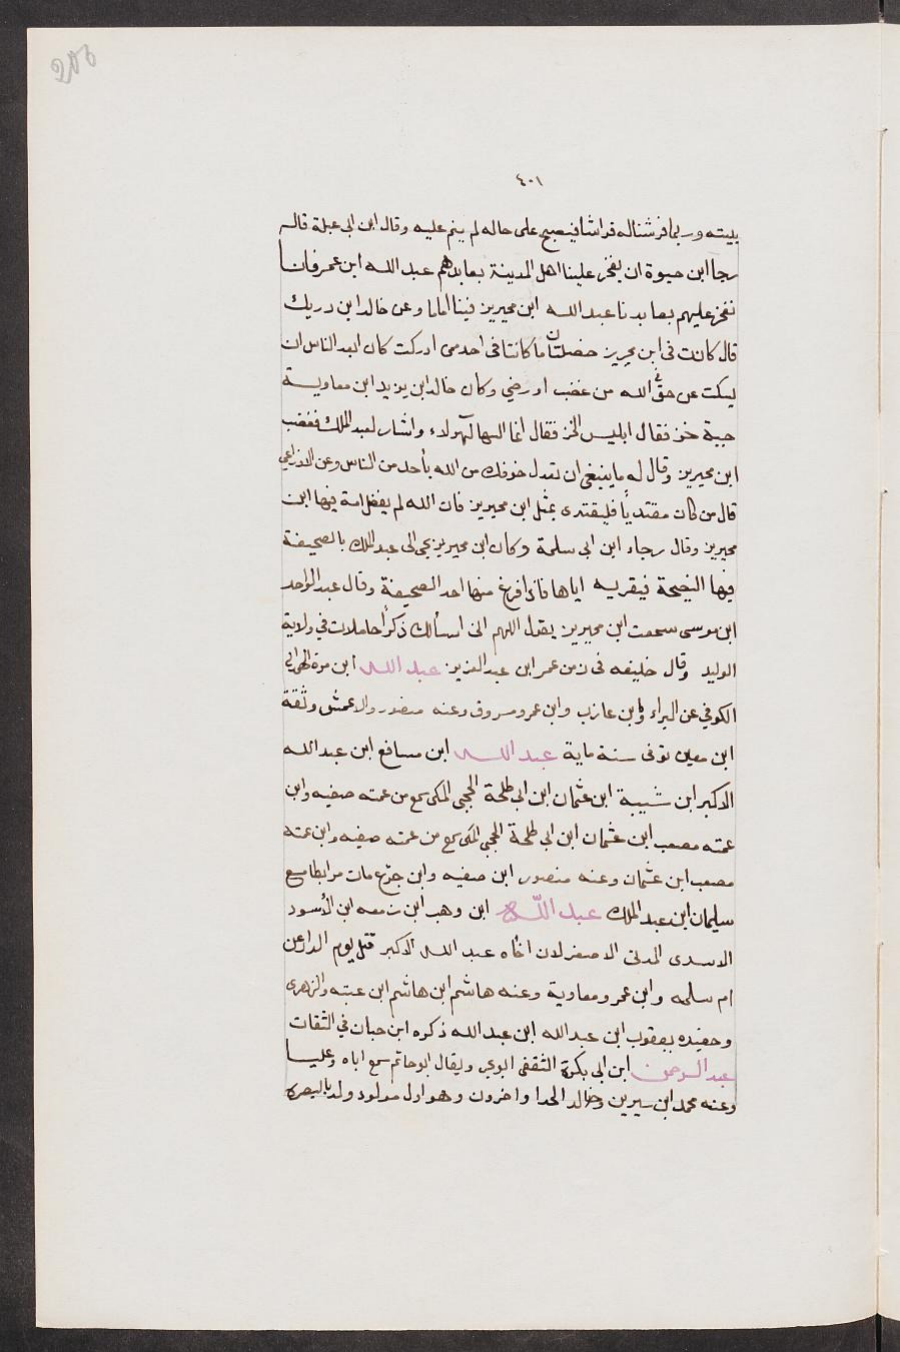 ٤٠١
بيته وربما فرشنا له فراشا فيصبح على حاله لم ينم عليه وقال ابن ابى عبلة قال
رجا ابن حيوة ان يفخر علينا اهل المدينة بعابدهم عبد الله ابن عمر فانا
نفخر عليهم بعابدنا عبد الله ابن محيريز فينا اماما وعن خالد ابن دريك
قال كانت فى ابن محيريز خصلتان ما كانتا فى احد من ادركت كان ابعد الناس ان
يسكت عن حق الله من غضب او رضي وكان خالد ابن يزيد ابن معاوية
جبة خز فقال ابليس الخز فقال انما البسها لهولاء واشار لعبد الملك فغضب
ابن محيريز وقال له ما ينبغى ان تعدل خوفك من الله بأحد من الناس وعن الاوزاعي
قال من كان مقتدياً فليقتدى بمثل ابن محيريز فان الله لم يضل امة فيها ابن
محيريز وقال رجاء ابن ابى سلمة وكان ابن محيريز يجى الى عبد الملك بالصحيفة
فيها النصيحة فيقريه اياها فاذا فرغ منها اخذ الصحيفة وقال عبد الواحد
ابن موسى سمعت ابن محيريز يقول اللهم انى اسألك ذكراً خاملا مات في ولاية
الوليد وقال خليفه فى زمن عمر ابن عبد العزيز عبد الله ابن مرة
الكوفي عن البراء ابن عازب وابن عمر ومسروق وعنه منصور والاعمش وثقة
ابن معين توفى سنة ماية عبد الله ابن مسافع ابن عبد الله
الاكبر ابن شيبة ابن عثمان ابن ابى طلحة الحجبى المكى سمع من عمته صفيه وابن
عمته مصعب ابن عثمان ابن ابى طلحة الحجبى المكى سمع من عمته صفيه وابن عمته
مصعب ابن عثمان وعنه منصور ابن صفيه وابن جريج مات مرابطا مع
سليمان ابن عبد الملك عبد الله ابن وهب ابن زمعه ابن الأسود
الاسدى المدنى الاصغر لان اخاه عبد الله الاكبر قتل يوم الدار عن
ام سلمه وابن عمر ومعاوية وعنه هاشم ابن هاشم ابن عتبه والزهرى
وحفيده يعقوب ابن عبد الله ابن عبد الله ذكره ابن حبان في الثقات
عبد الرحمن ابن ابى بكرة الثقفى ابو بحر ويقال ابو حاتم سمع اباه وعليا
وعنه محمد ابن سيرين وخالد الحذا واخرون وهو اول مولود ولد بالبصرة